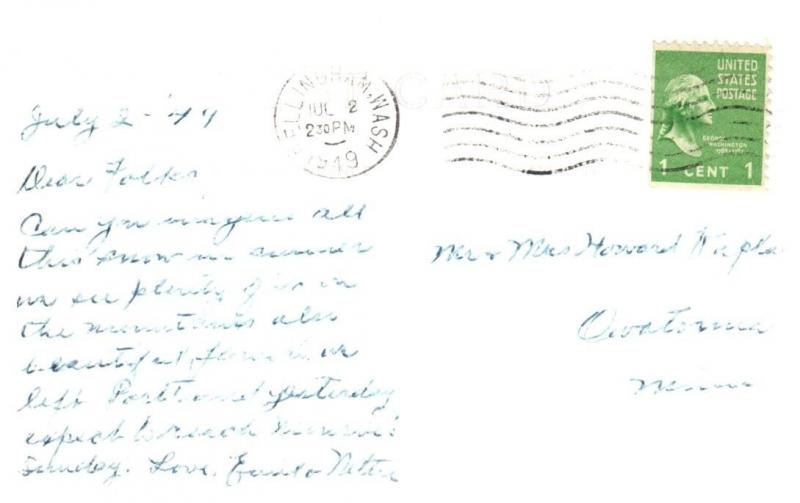 BELLINGHAM, WASH
JUL 2
2 30 PM
1949
UNITED
STATES
POSTAGE
GEORGE
WASHINGTON
1 CENT 1
July 2 - 49
Dear Folks
Can you imagine all
this snow in summer
we see plenty of it in
the mountains also
beautiful we
left Portland yesterday
expect to reach
Sunday. Love,
Mr & Mrs Howard
Owatonna
Minn